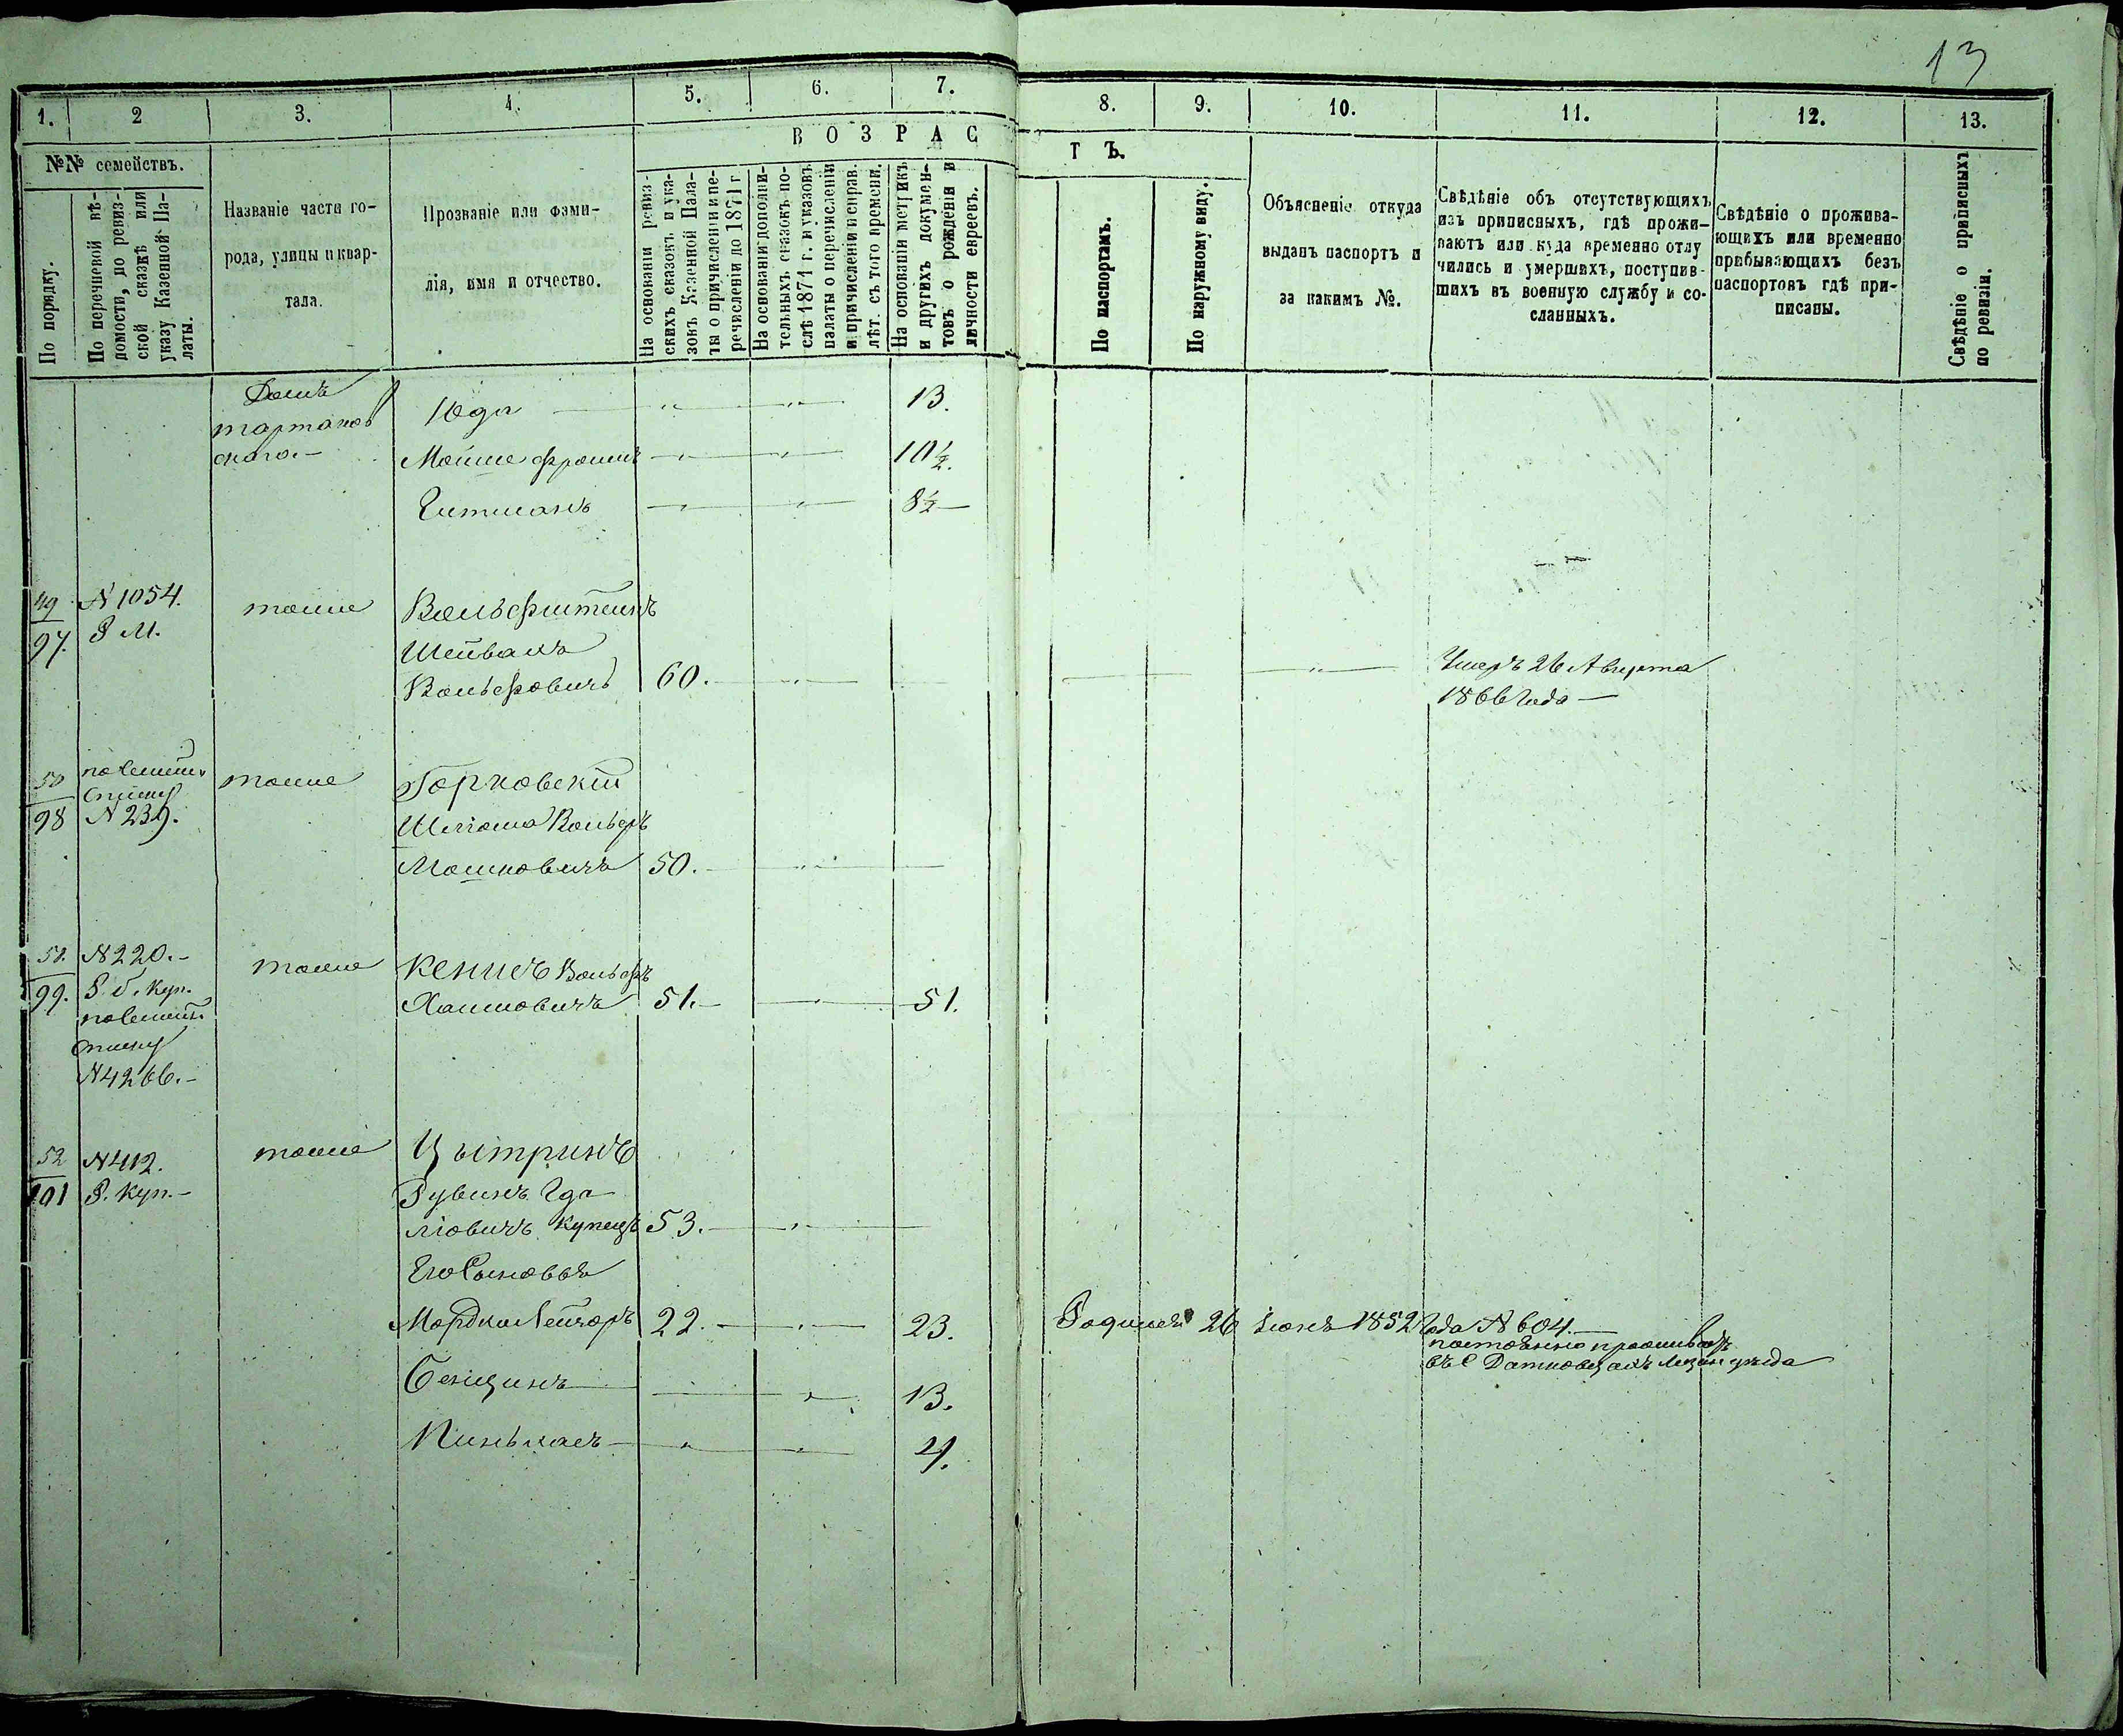 13
1. 2 3. 4. 5. 6. 7. 8. 9. 10. 11. 12. 13.
ВОЗРАСТЪ.
№№ семействъ.
По порядку.
По перечневой вѣ-
домости, по ревиз-
ской сказкѣ или
указу Казенной Па-
латы.
Названіе части го-
рода, улицы и квар-
тала.
Прозваніе или фами-
лія, имя и отчество.
На основаніи ревиз-
скихъ сказокъ и ука-
зовъ Казенной Пала-
ты о причисленіи и пе-
речисленіи до 1871 г.
На основаніи дополни-
тельныхъ сказокъ по-
слѣ 1871 г. и указовъ
палаты о перечисленіи
и причисленіи и справ.
лѣт. съ того времени.
На основаніи метрикъ
и другихъ докумен-
товъ о рожденіи и
личности евреевъ.
По паспортамъ.
По наружному виду.
Объясненіе откуда
выданъ паспортъ и
за какимъ №.
Свѣдѣніе объ отсутствующихъ
изъ приписныхъ, гдѣ прожи-
ваютъ или куда временно отлу
чились и умершихъ, поступив-
шихъ въ военную службу и со-
сланныхъ.
Свѣдѣніе о прожива-
ющихъ или временно
пребывающихъ безъ
паспортовъ гдѣ при-
писаны.
Свѣдѣніе о приписныхъ
по ревизіи.
Домъ
тартаков
скаго.-
Юда 13.
Мойше Фроимъ 10½.
Гитманъ 8½
49
97.
N 1054.
Р М.
тоже
Вольфштейнъ
Шейвахъ
Вольфовичъ 60.
Умеръ 26 Августа
1866 Года
50
98
N 239.
тоже
Горховскій
Шліома Вольфъ
Мошковичъ 50.
51.
99.
N 220.-
Р. б. Куп.
N 4266.-
тоже
Кенисъ Вольфъ
Хаимовичъ 51.- 51.
52
101
N 412.
Р. Куп.-
тоже
Цытринъ
Рувинъ Гда
ліовичъ Купецъ 53.
Его Сыновья
Мордко Лейзоръ 22. 23.
Родился 26 Іюня 1852 Года N 604.
постоянно проживаетъ
въ С уѣзда
Бенціинъ 13.
Пинькасъ 4.